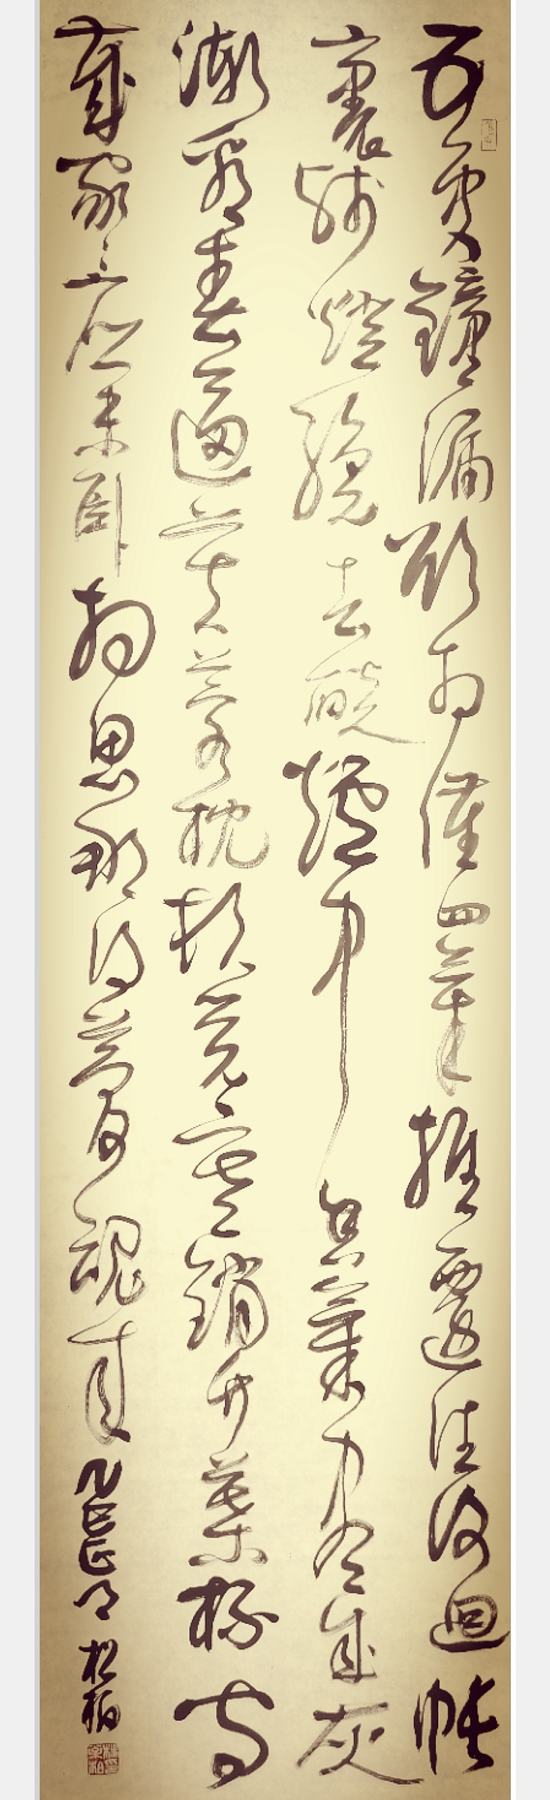 五更鐘漏欲相催四氣推遷往復迴帳
裏殘燈纔去焰爐中香氣盡成灰
漸看春逼芙蓉枕頓覺寒銷竹葉杯守
歲家家應未臥相思那得夢魂來
松柏